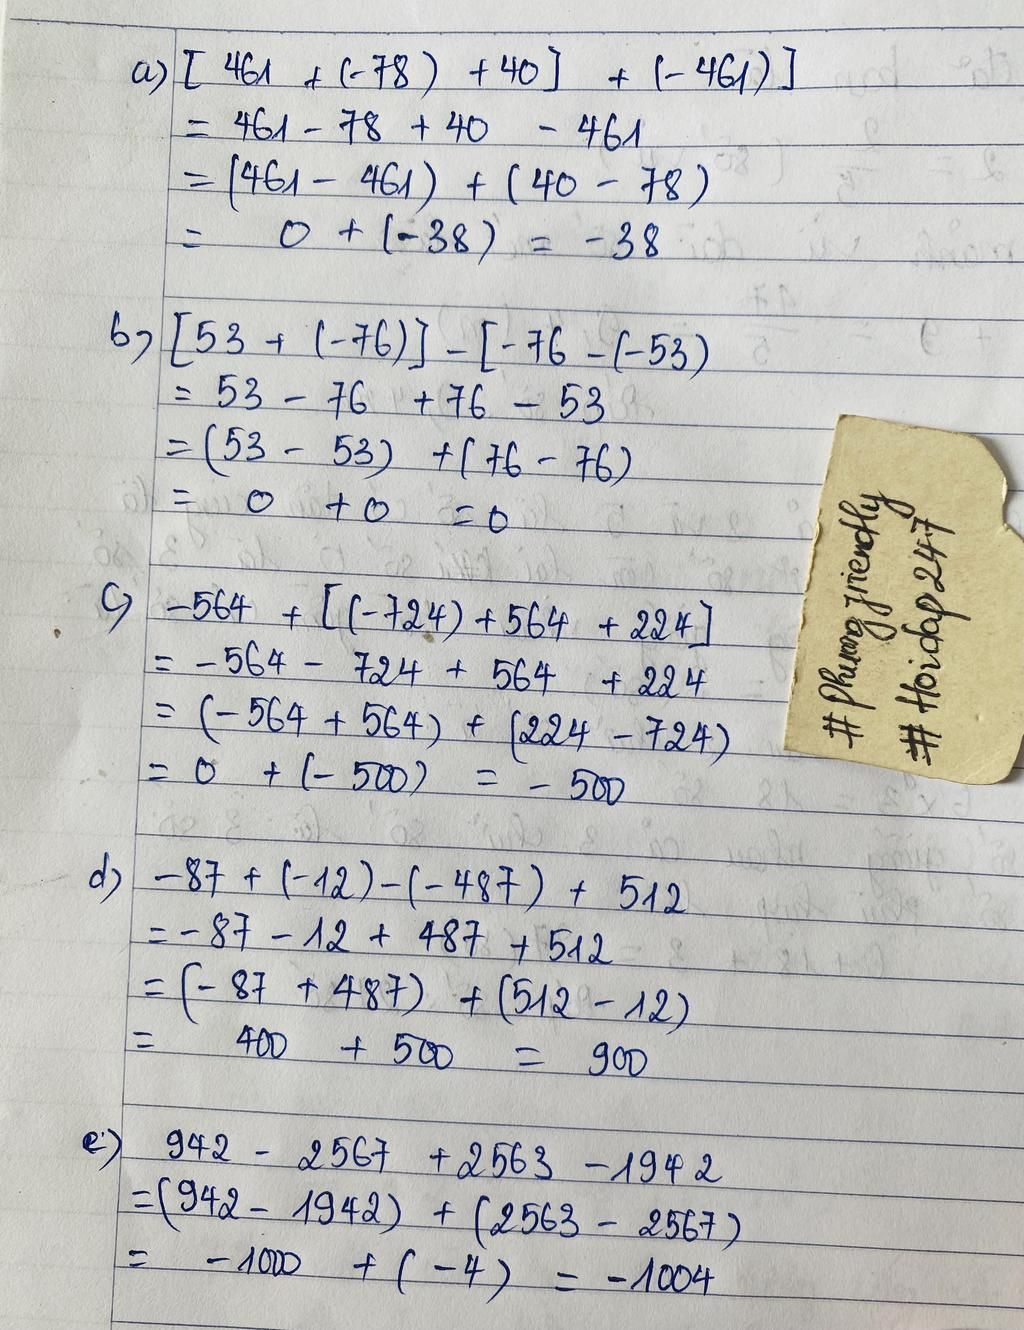 a) [461 + (-78) + 40] + (-461)]
= 461 - 78 + 40 - 461
= (461 - 461) + (40 - 78)
= 0 + (-38) = -38
b) [53 + (-76)] - [-76 - (-53)
= 53 - 76 + 76 - 53
= (53 - 53) + (76 - 76)
= 0 + 0 = 0
c) -564 + [(-724) + 564 + 224]
= -564 - 724 + 564 + 224
= (-564 + 564) + (224 - 724)
= 0 + (-500) = -500
d) -87 + (-12) - (-487) + 512
= -87 - 12 + 487 + 512
= (-87 + 487) + (512 - 12)
= 400 + 500 = 900
e) 942 - 2567 + 2563 - 1942
= (942 - 1942) + (2563 - 2567)
= -1000 + (-4) = -1004
#Phuongfriendly
#Hoidap247